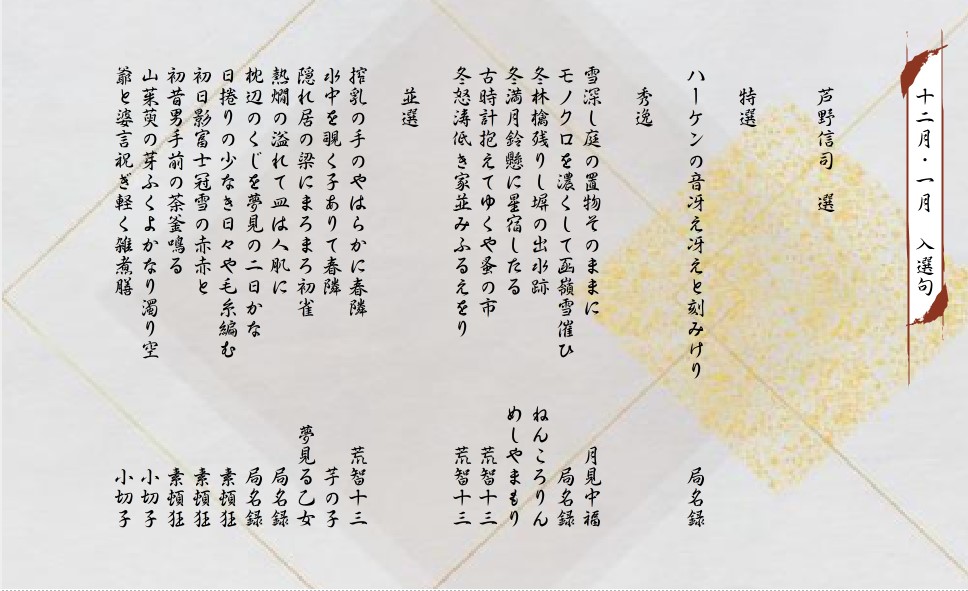 十二月・一月　入選句
芦野信司　選
特選
ハーケンの音冴え冴えと刻みけり　局名録
秀逸
雪深し庭の置物そのままに　月見中福
モノクロを濃くして函嶺雪催ひ　局名録
冬林檎残りし塀の出水跡　ねんころりん
冬満月鈴懸に星宿したる　めしやまもり
古時計抱えてゆくや蚤の市　荒智十三
冬怒涛低き家並みふるえをり　荒智十三
並選
搾乳の手のやはらかに春隣　荒智十三
水中を覗く子ありて春隣　芋の子
隠れ居の梁にまろまろ初雀　夢見る乙女
熱燗の溢れて皿は人肌に　局名録
枕辺のくじを夢見の二日かな　局名録
日捲りの少なき日々や毛糸編む　素頓狂
初日影富士冠雪の赤赤と　素頓狂
初昔男手前の茶釜鳴る　素頓狂
山茱萸の芽ふくよかなり濁り空　小切子
爺と婆言祝ぎ軽く雑煮膳　小切子